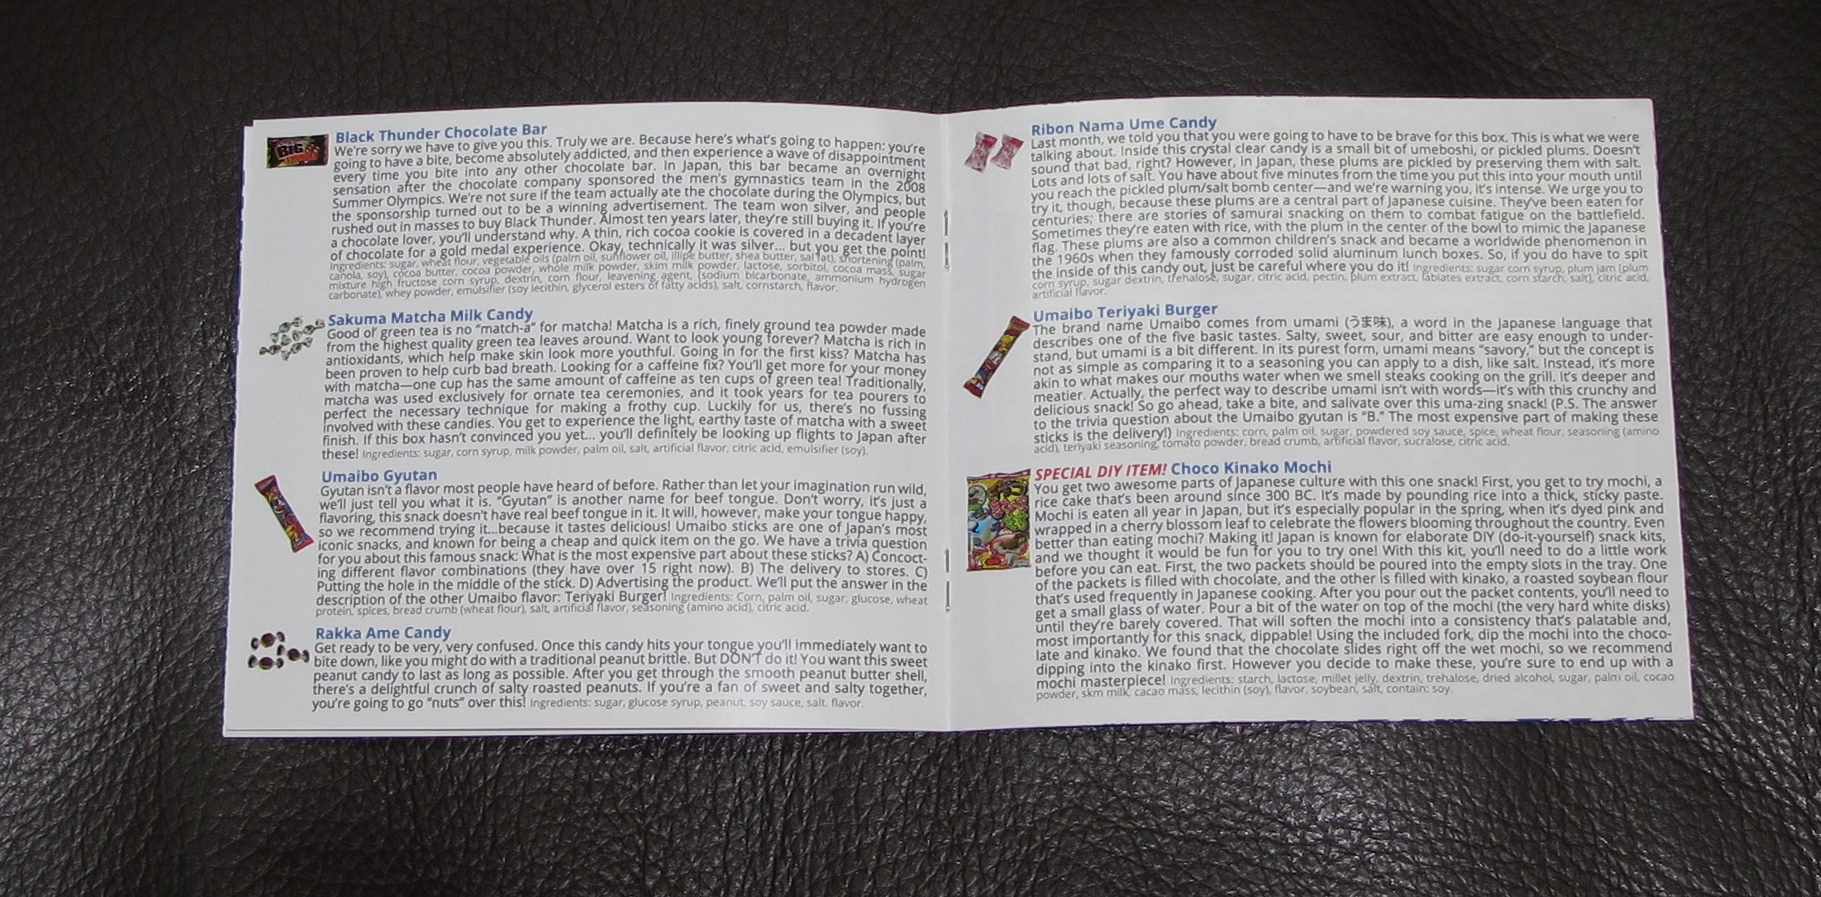 Black Thunder Chocolate Bar
We're sorry we have to give you this. Truly we are. Because here's what's going to happen: you're
going to have a bite, become absolutely addicted, and then experience a wave of disappointment
every time you bite into any other chocolate bar. In Japan, this bar became an overnight
sensation after the chocolate company sponsored the men's gymnastics team in the 2008
Summer Olympics. We're not sure if the team actually ate the chocolate during the Olympics, but
the sponsorship turned out to be a winning advertisement. The team won silver, and people
rushed out in masses to buy Black Thunder. Almost ten years later, they're still buying it. If you're
a chocolate lover, you'll understand why. A thin, rich cocoa cookie is covered in a decadent layer
of chocolate for a gold medal experience. Okay, technically it was silver... but you get the point!
Ingredients: sugar, wheat flour, vegetable oils (palm oil, sunflower oil, illipe butter, shea butter, sal fat), shortening (palm,
canola, soy), cocoa butter, cocoa powder, whole milk powder, skim milk powder, lactose, sorbitol, cocoa mass, sugar
mixture high fructose corn syrup, dextrin, corn flour, leavening agent, (sodium bicarbonate, ammonium hydrogen
carbonate), whey powder, emulsifier (soy lecithin, glycerol esters of fatty acids), salt, cornstarch, flavor.
BIG
Sakuma Matcha Milk Candy
Good ol' green tea is no "match-a" for matcha! Matcha is a rich, finely ground tea powder made
from the highest quality green tea leaves around. Want to look young forever? Matcha is rich in
antioxidants, which help make skin look more youthful. Going in for the first kiss? Matcha has
been proven to help curb bad breath. Looking for a caffeine fix? You'll get more for your money
with matcha—one cup has the same amount of caffeine as ten cups of green tea! Traditionally,
matcha was used exclusively for ornate tea ceremonies, and it took years for tea pourers to
perfect the necessary technique for making a frothy cup. Luckily for us, there's no fussing
involved with these candies. You get to experience the light, earthy taste of matcha with a sweet
finish. If this box hasn't convinced you yet... you'll definitely be looking up flights to Japan after
these! Ingredients: sugar, corn syrup, milk powder, palm oil, salt, artificial flavor, citric acid, emulsifier (soy).
Umaibo Gyutan
Gyutan isn't a flavor most people have heard of before. Rather than let your imagination run wild,
we'll just tell you what it is. "Gyutan" is another name for beef tongue. Don't worry, it's just a
flavoring, this snack doesn't have real beef tongue in it. It will, however, make your tongue happy,
so we recommend trying it...because it tastes delicious! Umaibo sticks are one of Japan's most
iconic snacks, and known for being a cheap and quick item on the go. We have a trivia question
for you about this famous snack: What is the most expensive part about these sticks? A) Concoct-
ing different flavor combinations (they have over 15 right now). B) The delivery to stores. C)
Putting the hole in the middle of the stick. D) Advertising the product. We'll put the answer in the
description of the other Umaibo flavor: Teriyaki Burger! Ingredients: Corn, palm oil, sugar, glucose, wheat
protein, spices, bread crumb (wheat flour), salt, artificial flavor, seasoning (amino acid), citric acid.
Rakka Ame Candy
Get ready to be very, very confused. Once this candy hits your tongue you'll immediately want to
bite down, like you might do with a traditional peanut brittle. But DON'T do it! You want this sweet
peanut candy to last as long as possible. After you get through the smooth peanut butter shell,
there's a delightful crunch of salty roasted peanuts. If you're a fan of sweet and salty together,
you're going to go "nuts" over this! Ingredients: sugar, glucose syrup, peanut, soy sauce, salt. flavor.
Ribon Nama Ume Candy
Last month, we told you that you were going to have to be brave for this box. This is what we were
talking about. Inside this crystal clear candy is a small bit of umeboshi, or pickled plums. Doesn't
sound that bad, right? However, in Japan, these plums are pickled by preserving them with salt.
Lots and lots of salt. You have about five minutes from the time you put this into your mouth until
you reach the pickled plum/salt bomb center—and we're warning you, it's intense. We urge you to
try it, though, because these plums are a central part of Japanese cuisine. They've been eaten for
centuries; there are stories of samurai snacking on them to combat fatigue on the battlefield.
Sometimes they're eaten with rice, with the plum in the center of the bowl to mimic the Japanese
flag. These plums are also a common children's snack and became a worldwide phenomenon in
the 1960s when they famously corroded solid aluminum lunch boxes. So, if you do have to spit
the inside of this candy out, just be careful where you do it! Ingredients: sugar corn syrup, plum jam [plum
corn syrup, sugar dextrin, trehalose, sugar, citric acid, pectin, plum extract, labiates extract, corn starch, salt], citric acid,
artificial flavor.
Umaibo Teriyaki Burger
The brand name Umaibo comes from umami (うま味), a word in the Japanese language that
describes one of the five basic tastes. Salty, sweet, sour, and bitter are easy enough to under-
stand, but umami is a bit different. In its purest form, umami means "savory," but the concept is
not as simple as comparing it to a seasoning you can apply to a dish, like salt. Instead, it's more
akin to what makes our mouths water when we smell steaks cooking on the grill. It's deeper and
meatier. Actually, the perfect way to describe umami isn't with words—it's with this crunchy and
delicious snack! So go ahead, take a bite, and salivate over this uma-zing snack! (P.S. The answer
to the trivia question about the Umaibo gyutan is "B." The most expensive part of making these
sticks is the delivery!) Ingredients: corn, palm oil, sugar, powdered soy sauce, spice, wheat flour, seasoning (amino
acid), teriyaki seasoning, tomato powder, bread crumb, artificial flavor, sucralose, citric acid.
SPECIAL DIY ITEM! Choco Kinako Mochi
You get two awesome parts of Japanese culture with this one snack! First, you get to try mochi, a
rice cake that's been around since 300 BC. It's made by pounding rice into a thick, sticky paste.
Mochi is eaten all year in Japan, but it's especially popular in the spring, when it's dyed pink and
wrapped in a cherry blossom leaf to celebrate the flowers blooming throughout the country. Even
better than eating mochi? Making it! Japan is known for elaborate DIY (do-it-yourself) snack kits,
and we thought it would be fun for you to try one! With this kit, you'll need to do a little work
before you can eat. First, the two packets should be poured into the empty slots in the tray. One
of the packets is filled with chocolate, and the other is filled with kinako, a roasted soybean flour
that's used frequently in Japanese cooking. After you pour out the packet contents, you'll need to
get a small glass of water. Pour a bit of the water on top of the mochi (the very hard white disks)
until they're barely covered. That will soften the mochi into a consistency that's palatable and,
most importantly for this snack, dippable! Using the included fork, dip the mochi into the choco-
late and kinako. We found that the chocolate slides right off the wet mochi, so we recommend
dipping into the kinako first. However you decide to make these, you're sure to end up with a
mochi masterpiece! Ingredients: starch, lactose, millet jelly, dextrin, trehalose, dried alcohol, sugar, palm oil, cocao
powder, skm milk, cacao mass, lecithin (soy), flavor, soybean, salt, contain: soy.